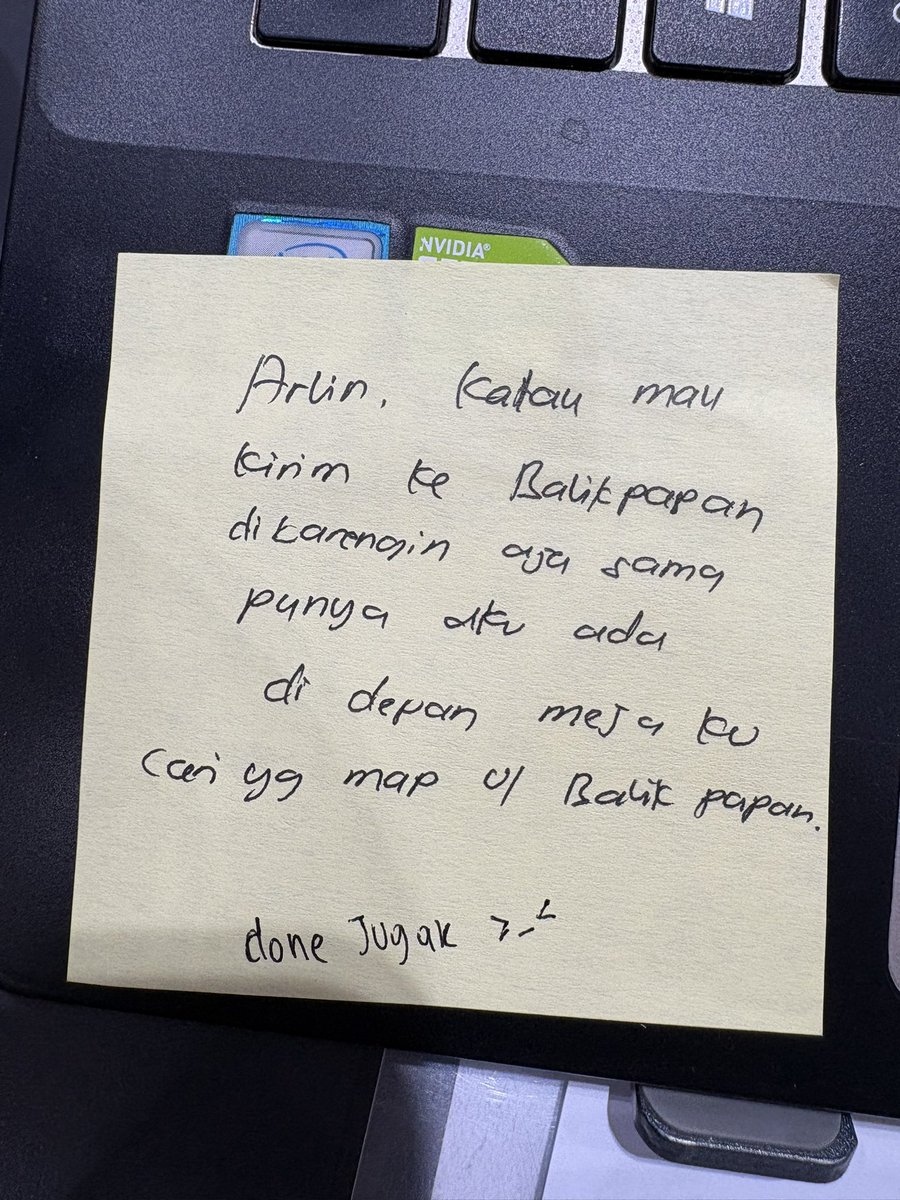 NVIDIA®
Arlin, Kalau mau
kirim ke Balikpapan
dikarengin aja sama
punya aku ada
di depan meja ku
Cari yg map u/ Balikpapan.
done Jugak